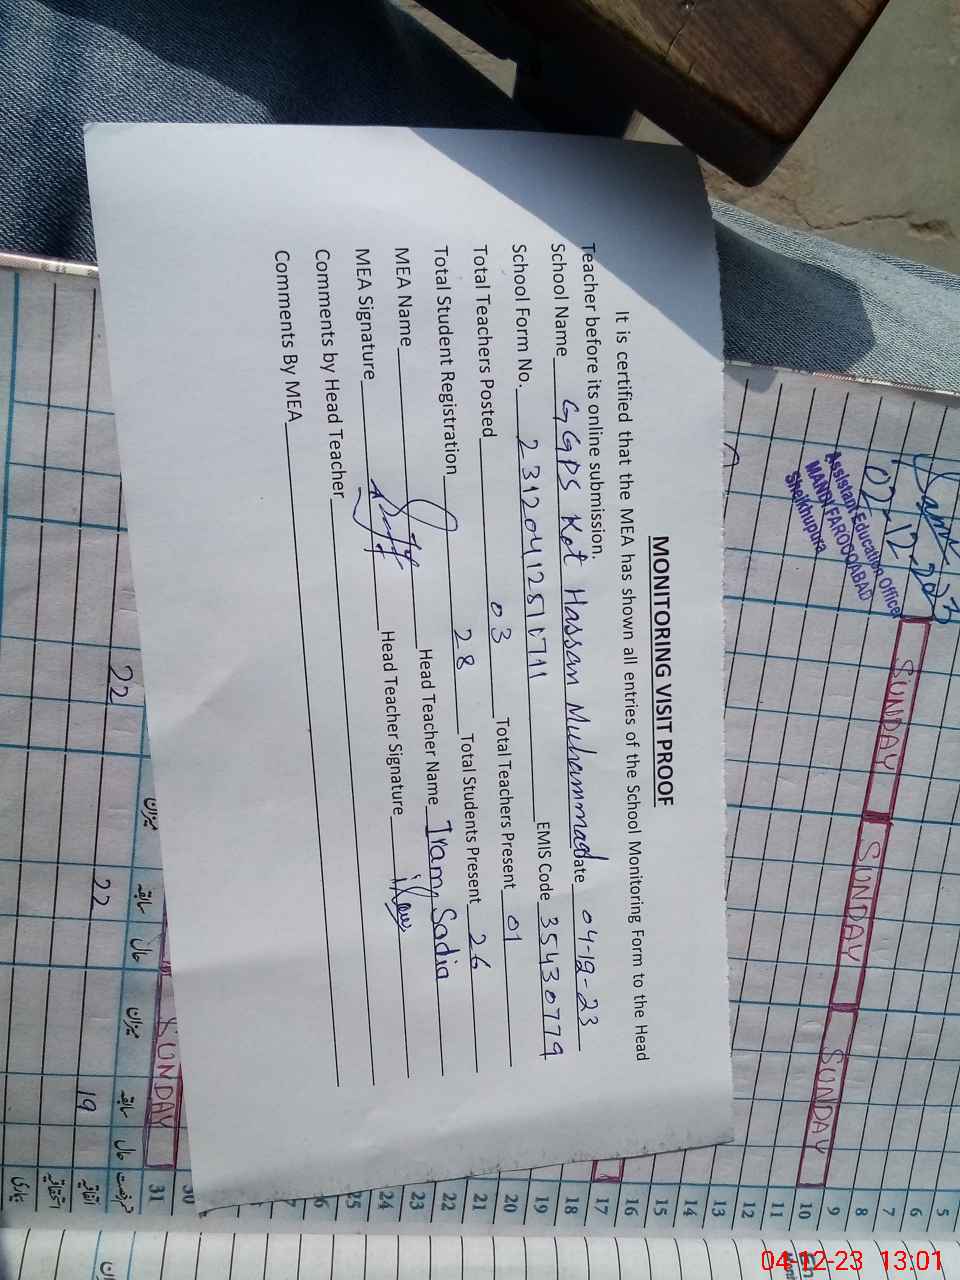 MONITORING VISIT PROOF
It is certified that the MEA has shown all entries of the School Monitoring Form to the Head
Teacher before its online submission.
School Name GGPS Kot Hassan Muhammad Date 04-12-23
School Form No. EMIS Code 35430779
Total Teachers Posted 03 Total Teachers Present 01
Total Student Registration 28 Total Students Present 26
MEA Name Head Teacher Name Iram Sadia
MEA Signature Head Teacher Signature
Comments by Head Teacher
Comments By MEA
02-12-2023
Assistant Education Officer
MANDI FAROOQABAD
Sheikhupura
SUNDAY
SUNDAY
SUNDAY
SUNDAY
5
6
7
8
9
10
11
12
13
14
15
16
17
18
19
20
21
22
23
24
25
26
27
30
31
22
22
19
میزان
سابقہ
حال
میزان
سابقہ
حال
اتفاقیہ
استحقاقیہ
بیماری
04-12-23 13:01